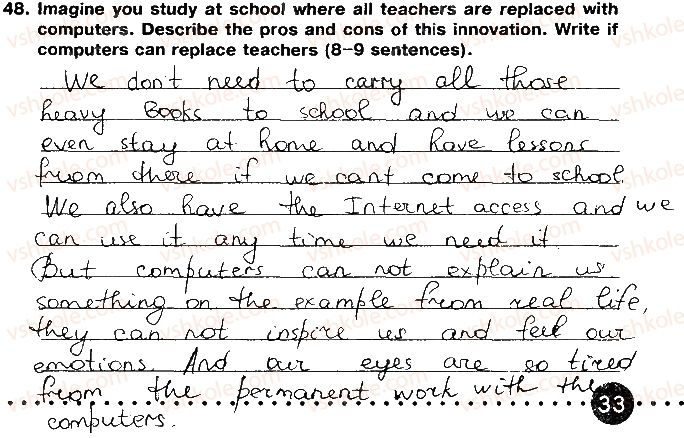 48. Imagine you study at school where all teachers are replaced with
computers. Describe the pros and cons of this innovation. Write if
computers can replace teachers (8–9 sentences).
We don't need to carry all those
heavy Books to school and we can
even stay at home and have lessons
from there if we cant come to school.
We also have the Internet access and we
can use it any time we need it.
But computers can not explain us
something on the example from real life,
they can not inspire us and feel our
emotions. And our eyes are so tired
from the permanent work with the
computers.
33